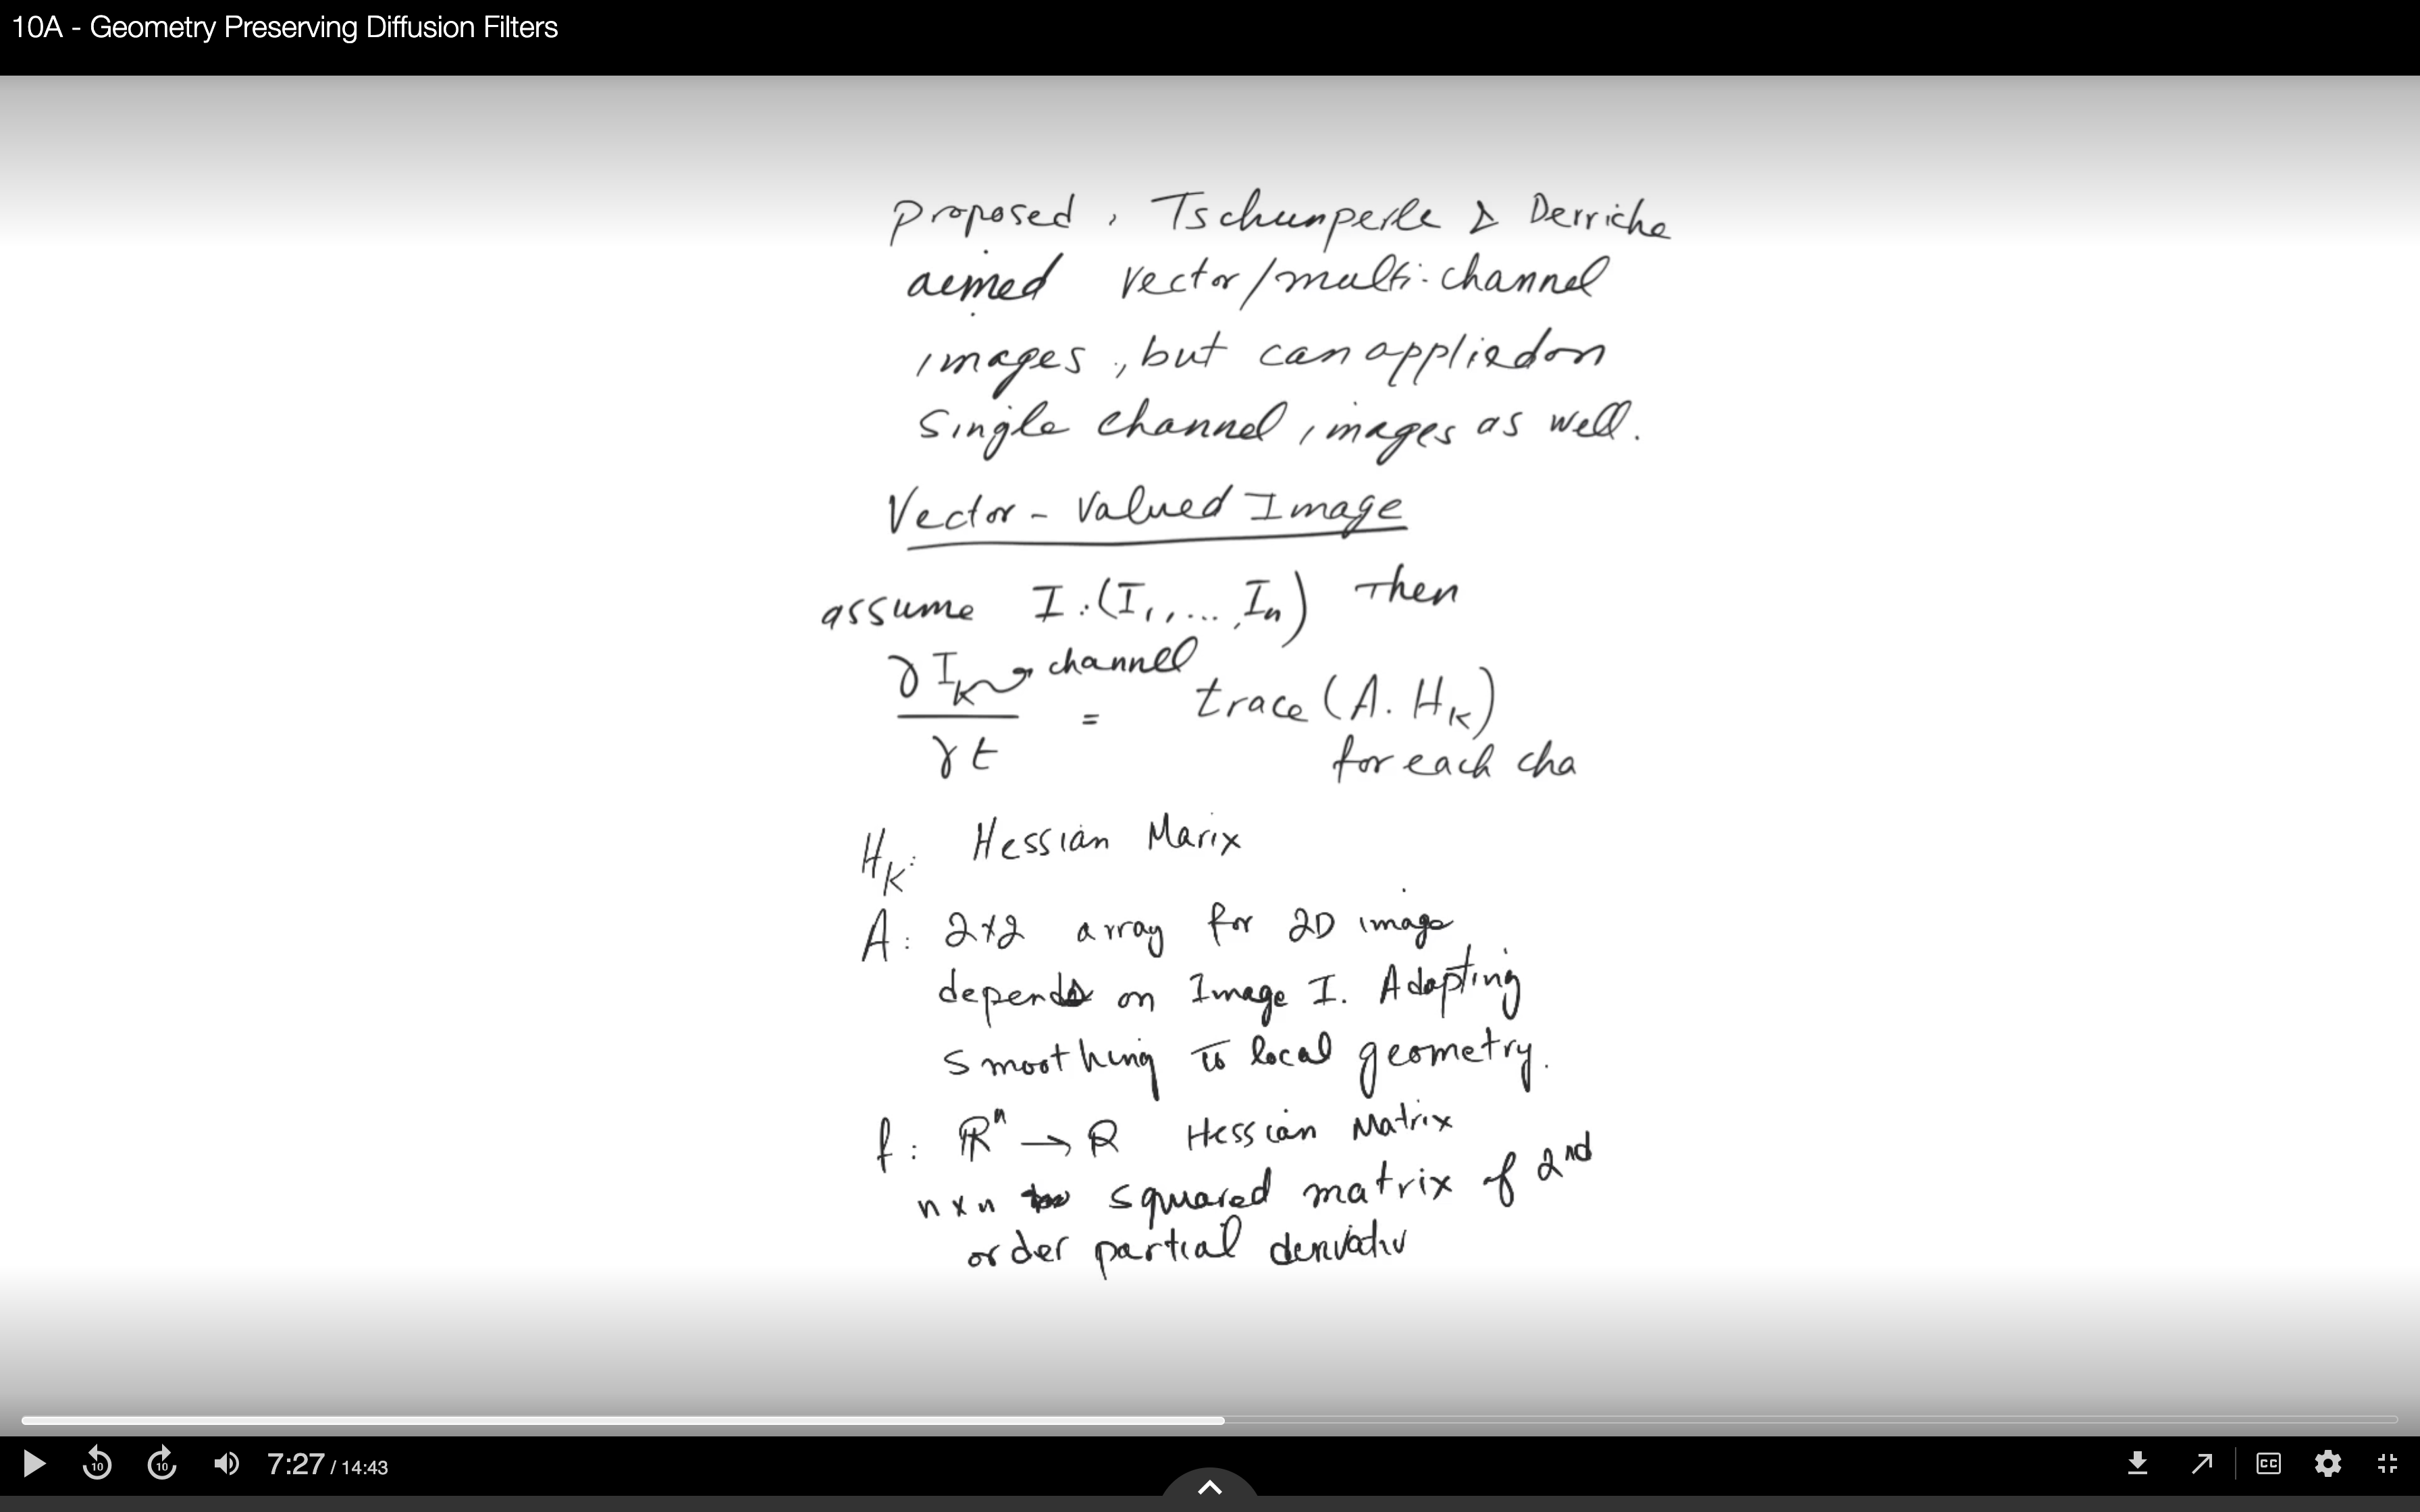 10A - Geometry Preserving Diffusion Filters
proposed, Tschumperle & Derriche
aimed vector/multi-channel
images, but can appliedon
single channel images as well.
Vector-Valued Image
assume I:(I₁,...,Iₙ) Then
∂I_K channel
― = trace(A.H_K)
∂t for each cha
H_K: Hessian Marix
A: 2x2 array for 2D image
depends on Image I. Adapting
smoothing to local geometry.
f: ℝⁿ → ℝ Hessian Matrix
n x n squared matrix of 2nd
order partial derivativ
7:27 / 14:43
10 10 CC